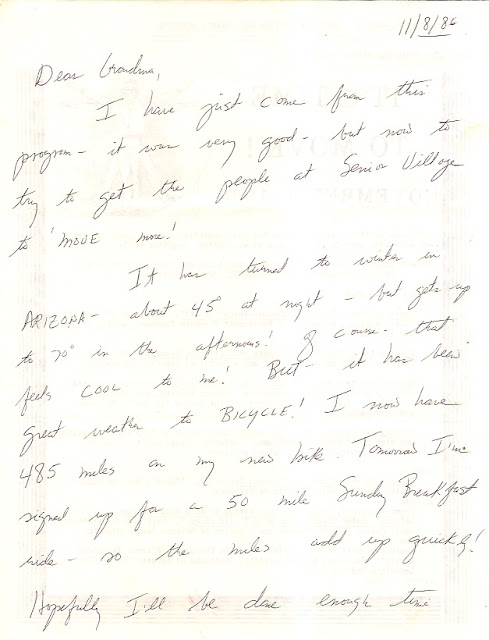 11/8/86
Dear Grandma,
I have just come from this
program - it was very good - but now to
try to get the people at Senior Village
to 'MOVE more!
It has turned to winter in
ARIZONA - about 45° at night - but gets up
to 70° in the afternoons! Of course - that
feels COOL to me! But - it has been
great weather to BICYCLE! I now have
485 miles on my new bike. Tomorrow I'm
signed up for a 50 mile Sunday Breakfast
ride - so the miles add up quickly!
Hopefully I'll be done enough time